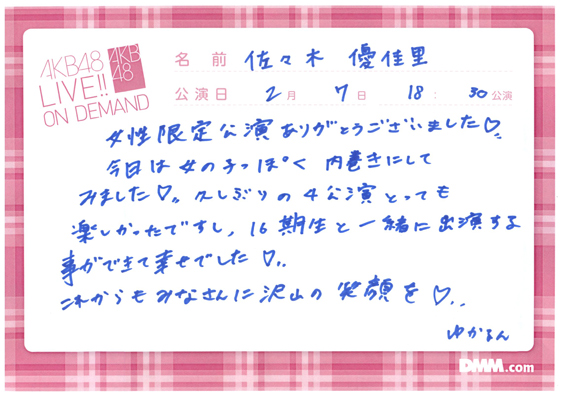 AKB48
LIVE!!
ON DEMAND
AKB
48
名前 佐々木 優佳里
公演日 2月 7日 18:30公演
女性限定公演ありがとうございました♡
今日は女の子っぽく 内巻きにして
みました♡ 久しぶりの4公演とっても
楽しかったですし、16期生と一緒に出演する
事ができて幸せでした♡..
これからもみなさんに沢山の笑顔を♡..
ゆかるん
DMM.com